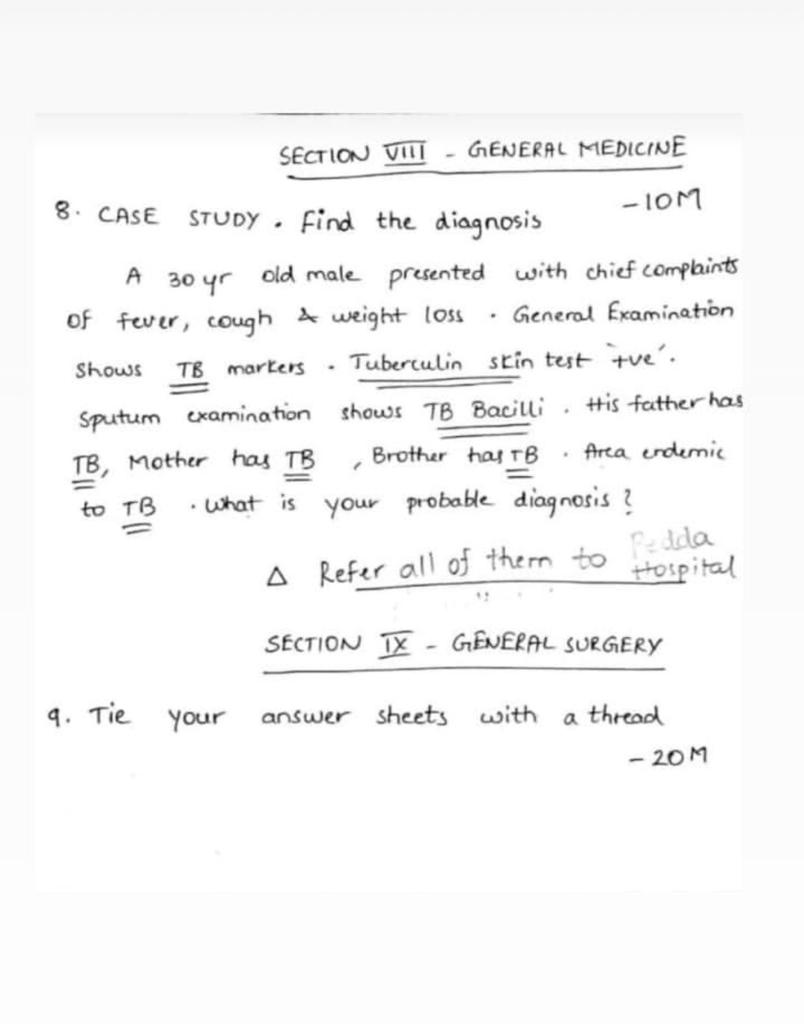 SECTION VIII - GENERAL MEDICINE
- 10M
8. CASE STUDY. Find the diagnosis
A 30 yr old male presented with chief complaints
of fever, cough & weight loss. General Examination
shows TB markers. Tuberculin skin test '+ve'.
Sputum examination shows TB Bacilli. His father has
TB, Mother has TB, Brother has TB. Area endemic
to TB. What is your probable diagnosis?
Pedda
Δ Refer all of them to Hospital
SECTION IX - GENERAL SURGERY
9. Tie your answer sheets with a thread
- 20M